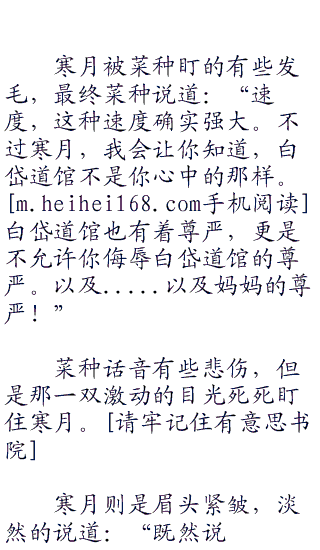 寒月被菜种盯的有些发
毛，最终菜种说道：“速
度，这种速度确实强大。不
过寒月，我会让你知道，白
岱道馆不是你心中的那样。
[m.heihei168.com手机阅读]
白岱道馆也有着尊严，更是
不允许你侮辱白岱道馆的尊
严。以及.....以及妈妈的尊
严！”
菜种话音有些悲伤，但
是那一双激动的目光死死盯
住寒月。[请牢记住有意思书
院]
寒月则是眉头紧皱，淡
然的说道：“既然说